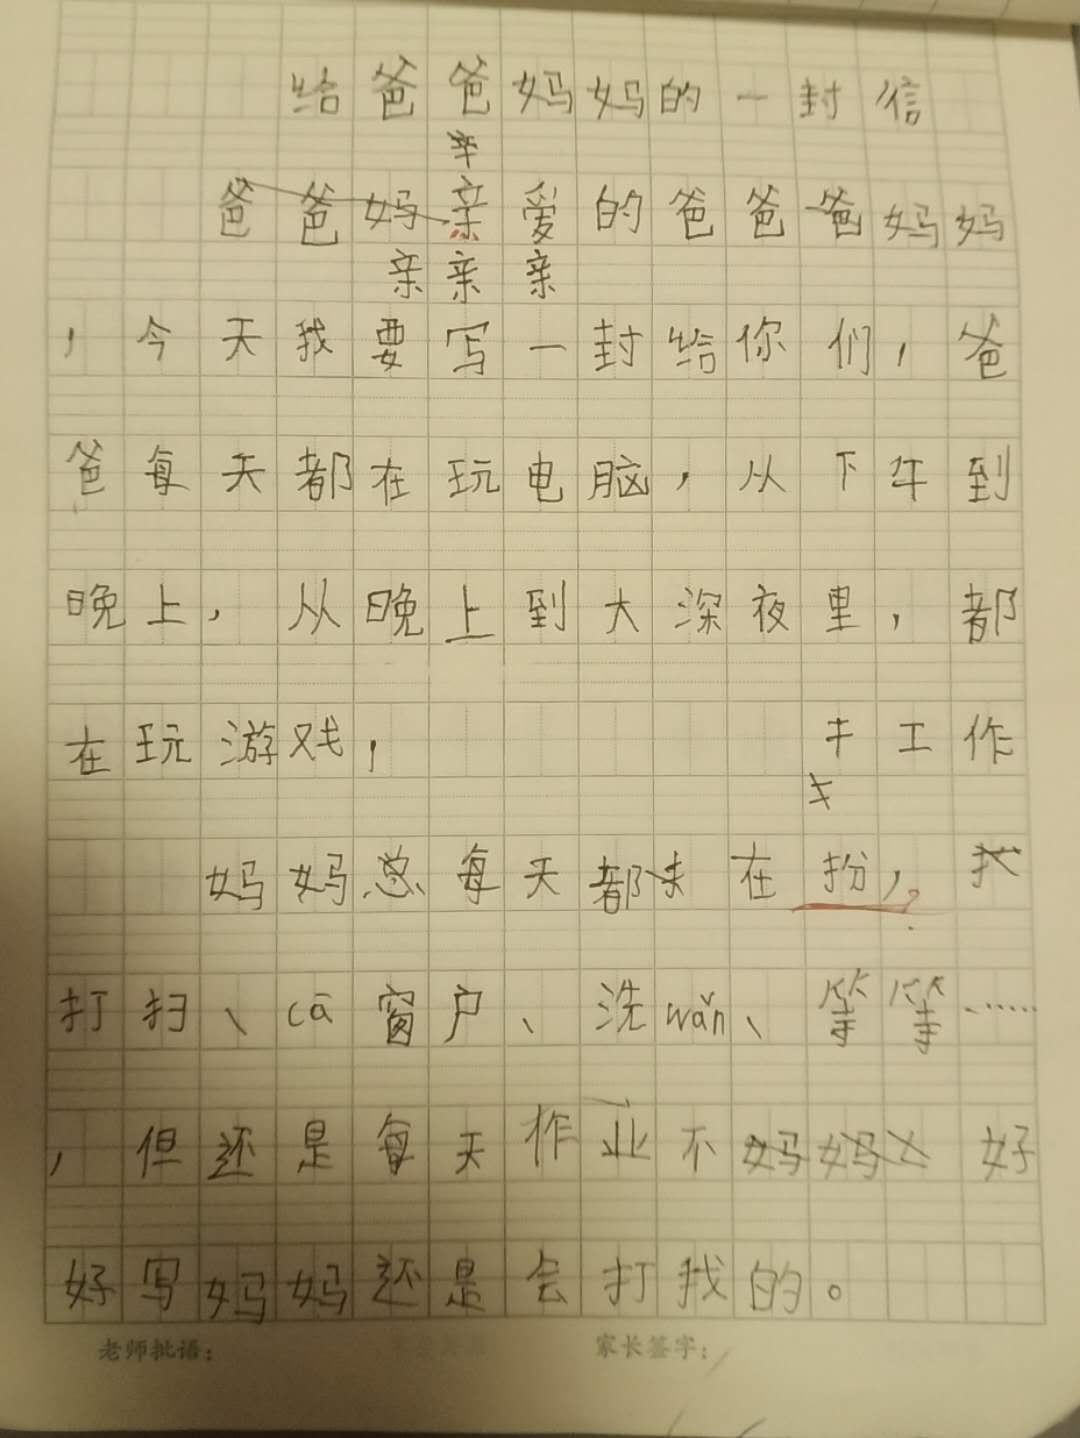 给爸爸妈妈的一封信
爸爸妈亲爱的爸爸爸妈妈
亲亲亲
，今天我要写一封给你们，爸
爸每天都在玩电脑，从下午到
晚上，从晚上到大深夜里，都
在玩游戏，
工作
妈妈总每天都在扮，
打扫、cā窗户、洗wǎn、等等……
，但还是每天作业不妈妈好
好写妈妈还是会打我的。
老师批语：
家长签字：